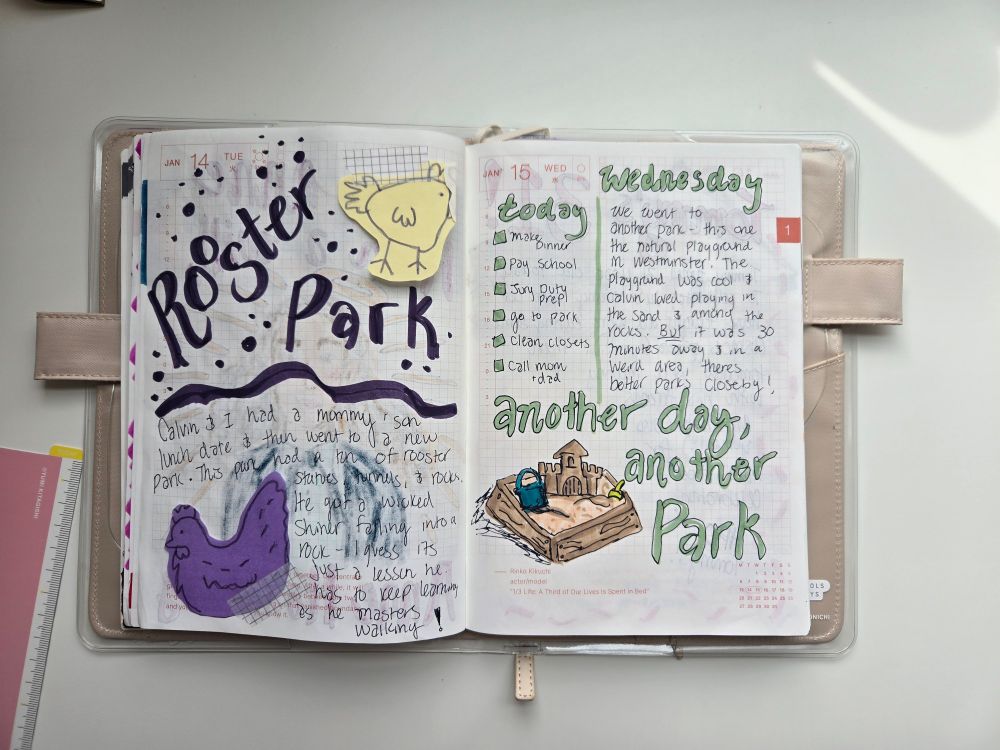 JAN 14 TUE
火
Rooster
Park
Calvin & I had a mommy + son
lunch date & then went to a new
park. This park had a ton of rooster
statues, tunnels, & rocks.
He got a wicked
shiner falling into a
rock - I guess its
just a lesson he
has to keep learning
as he masters
walking!
JAN 15 WED
水
today
make dinner
Pay school
Jury Duty prep!
go to park
Clean closets
Call mom + dad
Wednesday
We went to
another park - this one
the natural playground
in Westminster. The
playground was cool &
Calvin loved playing in
the sand & among the
rocks. But it was 30
minutes away & in a
weird area, theres
better parks closeby!
another day,
another
Park
1
Rinko Kikuchi
acter/model
"1/3 Life: A Third of Our Lives Is Spent in Bed"
M T W T F S S
1 2 3 4 5
6 7 8 9 10 11 12
13 14 15 16 17 18 19
20 21 22 23 24 25 26
27 28 29 30 31
©YUMI KITAGISHI